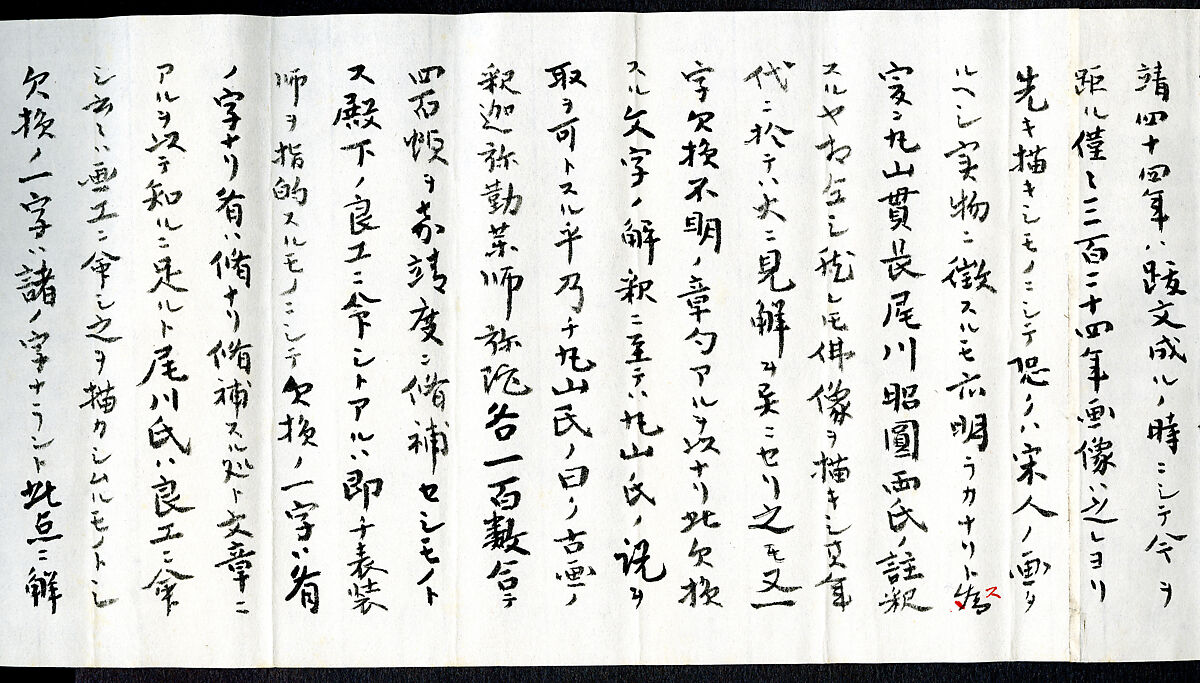 靖四十四年ハ跋文成ルノ時ニシテ今ヲ
距ル僅々三百二十四年画像ハ之レヨリ
先キ描キシモノニシテ恐クハ宋人ノ画タ
ルヘシ実物ニ徴スルモ亦明ラカナリトス
爰ニ丸山貫長尾川昭圓両氏ノ註釈
スルヤ相互シ然レモ仏像ヲ描キシ其年
代ニ於テハ大ニ見解ヲ異ニセリ之モ又一
字欠損不明ノ章句アルヲ以ナリ此欠損
スル文字ノ解釈ニ至テハ丸山氏ノ説ヲ
取ヲ可トスル乎乃チ丸山氏ノ曰ノ古画ノ
釈迦弥勤薬師弥陀各一百数合テ
四百幀ヲ嘉靖度ニ脩補セシモノト
ス殿下ノ良工ニ命シトアルハ即チ表装
師ヲ指的スルモノニシテ欠損ノ一字ハ脩
ノ字ナリ脩ハ脩ナリ脩補スル処ト文章ニ
アルヲ以テ知ルニ足ルト尾川氏ハ良工ニ命
シ云々ハ画工ニ命シ之ヲ描カシムルモノトシ
欠損ノ一字ハ諸ノ字ナラント此点ニ解